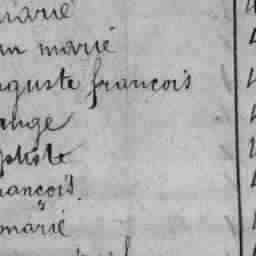 marié
an marié
uguste francois
ange
ptiste
rancois
marié